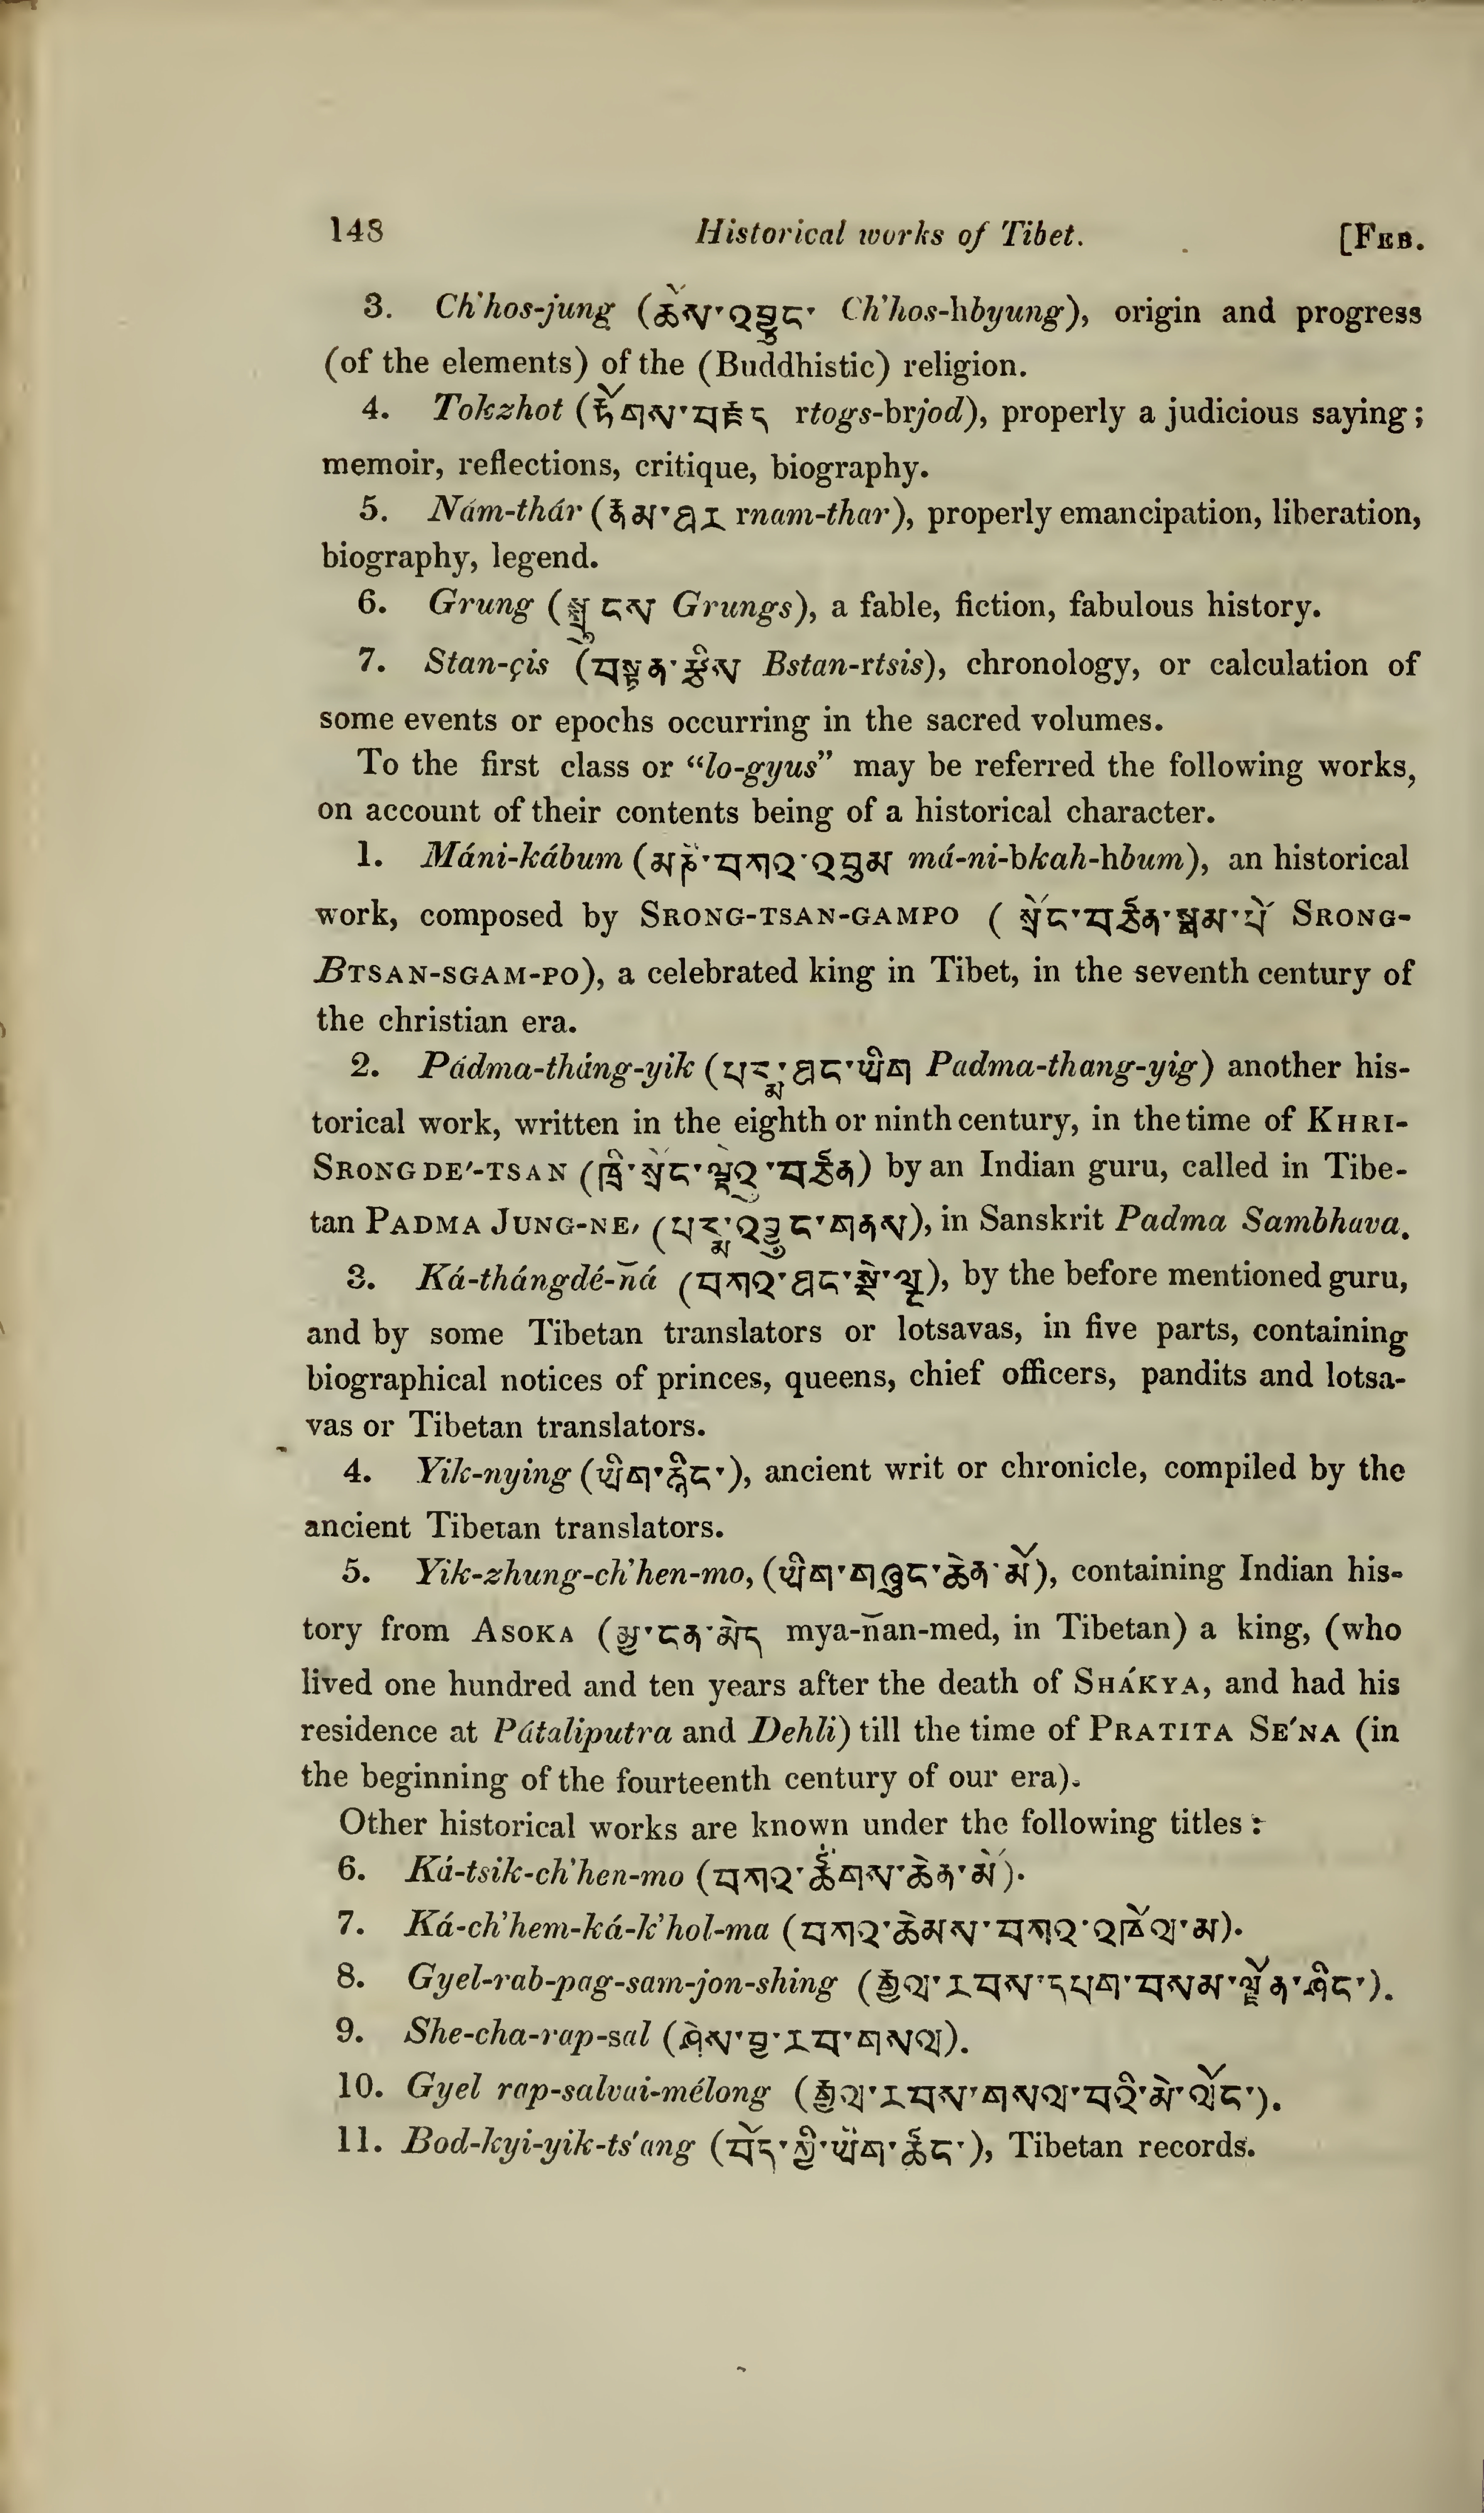 148 Historical works of Tibet. [FEB.
3. Ch'hos-jung (ཆོས་འབྱུང་ Ch'hos-hbyung), origin and progress
(of the elements) of the (Buddhistic) religion.
4. Tokzhot (རྟོགས་བརྗད rtogs-brjod), properly a judicious saying;
memoir, reflections, critique, biography.
5. Nám-thár (རྣམ་ཐར rnam-thar), properly emancipation, liberation,
biography, legend.
6. Grung (སྒྲུངས Grungs), a fable, fiction, fabulous history.
7. Stan-çis (བསྟན་རྩིས Bstan-rtsis), chronology, or calculation of
some events or epochs occurring in the sacred volumes.
To the first class or “lo-gyus” may be referred the following works,
on account of their contents being of a historical character.
1. Máni-kábum (མཎི་བཀའ་འབུམ má-ni-bkah-hbum), an historical
work, composed by SRONG-TSAN-GAMPO (སྲོང་བཙན་སྒམ་པོ SRONG-
BTSAN-SGAM-PO), a celebrated king in Tibet, in the seventh century of
the christian era.
2. Pádma-tháng-yik (པདྨ་ཐང་ཡིག Padma-thang-yig) another his-
torical work, written in the eighth or ninth century, in the time of KHRI-
SRONG DE'-TSAN (ཁྲི་སྲོང་ལྡེའུ་བཙན) by an Indian guru, called in Tibe-
tan PADMA JUNG-NE, (པདྨ་འབྱུང་གནས), in Sanskrit Padma Sambhava.
3. Ká-thángdé-ñá (བཀའ་ཐང་སྡེ་ལྔ), by the before mentioned guru,
and by some Tibetan translators or lotsavas, in five parts, containing
biographical notices of princes, queens, chief officers, pandits and lotsa-
vas or Tibetan translators.
4. Yik-nying (ཡིག་རྙིང་), ancient writ or chronicle, compiled by the
ancient Tibetan translators.
5. Yik-zhung-ch'hen-mo, (ཡིག་གཞུང་ཆེན་མོ), containing Indian his-
tory from ASOKA (མྱ་ངན་མེད mya-ñan-med, in Tibetan) a king, (who
lived one hundred and ten years after the death of SHÁKYA, and had his
residence at Pátaliputra and Dehli) till the time of PRATITA SE'NA (in
the beginning of the fourteenth century of our era).
Other historical works are known under the following titles:
6. Ká-tsik-ch'hen-mo (བཀའ་ཚིགས་ཆེན་མོ).
7. Ká-ch'hem-ká-k'hol-ma (བཀའ་ཆེམས་བཀའ་འཁོལ་མ).
8. Gyel-rab-pag-sam-jon-shing (རྒྱལ་རབས་དཔག་བསམ་ལྗོན་ཤིང་).
9. She-cha-rap-sal (ཤེས་བྱ་རབ་གསལ).
10. Gyel rap-salvai-mélong (རྒྱལ་རབས་གསལ་བའི་མེ་ལོང་).
11. Bod-kyi-yik-ts'ang (བོད་ཀྱི་ཡིག་ཚང་), Tibetan records.